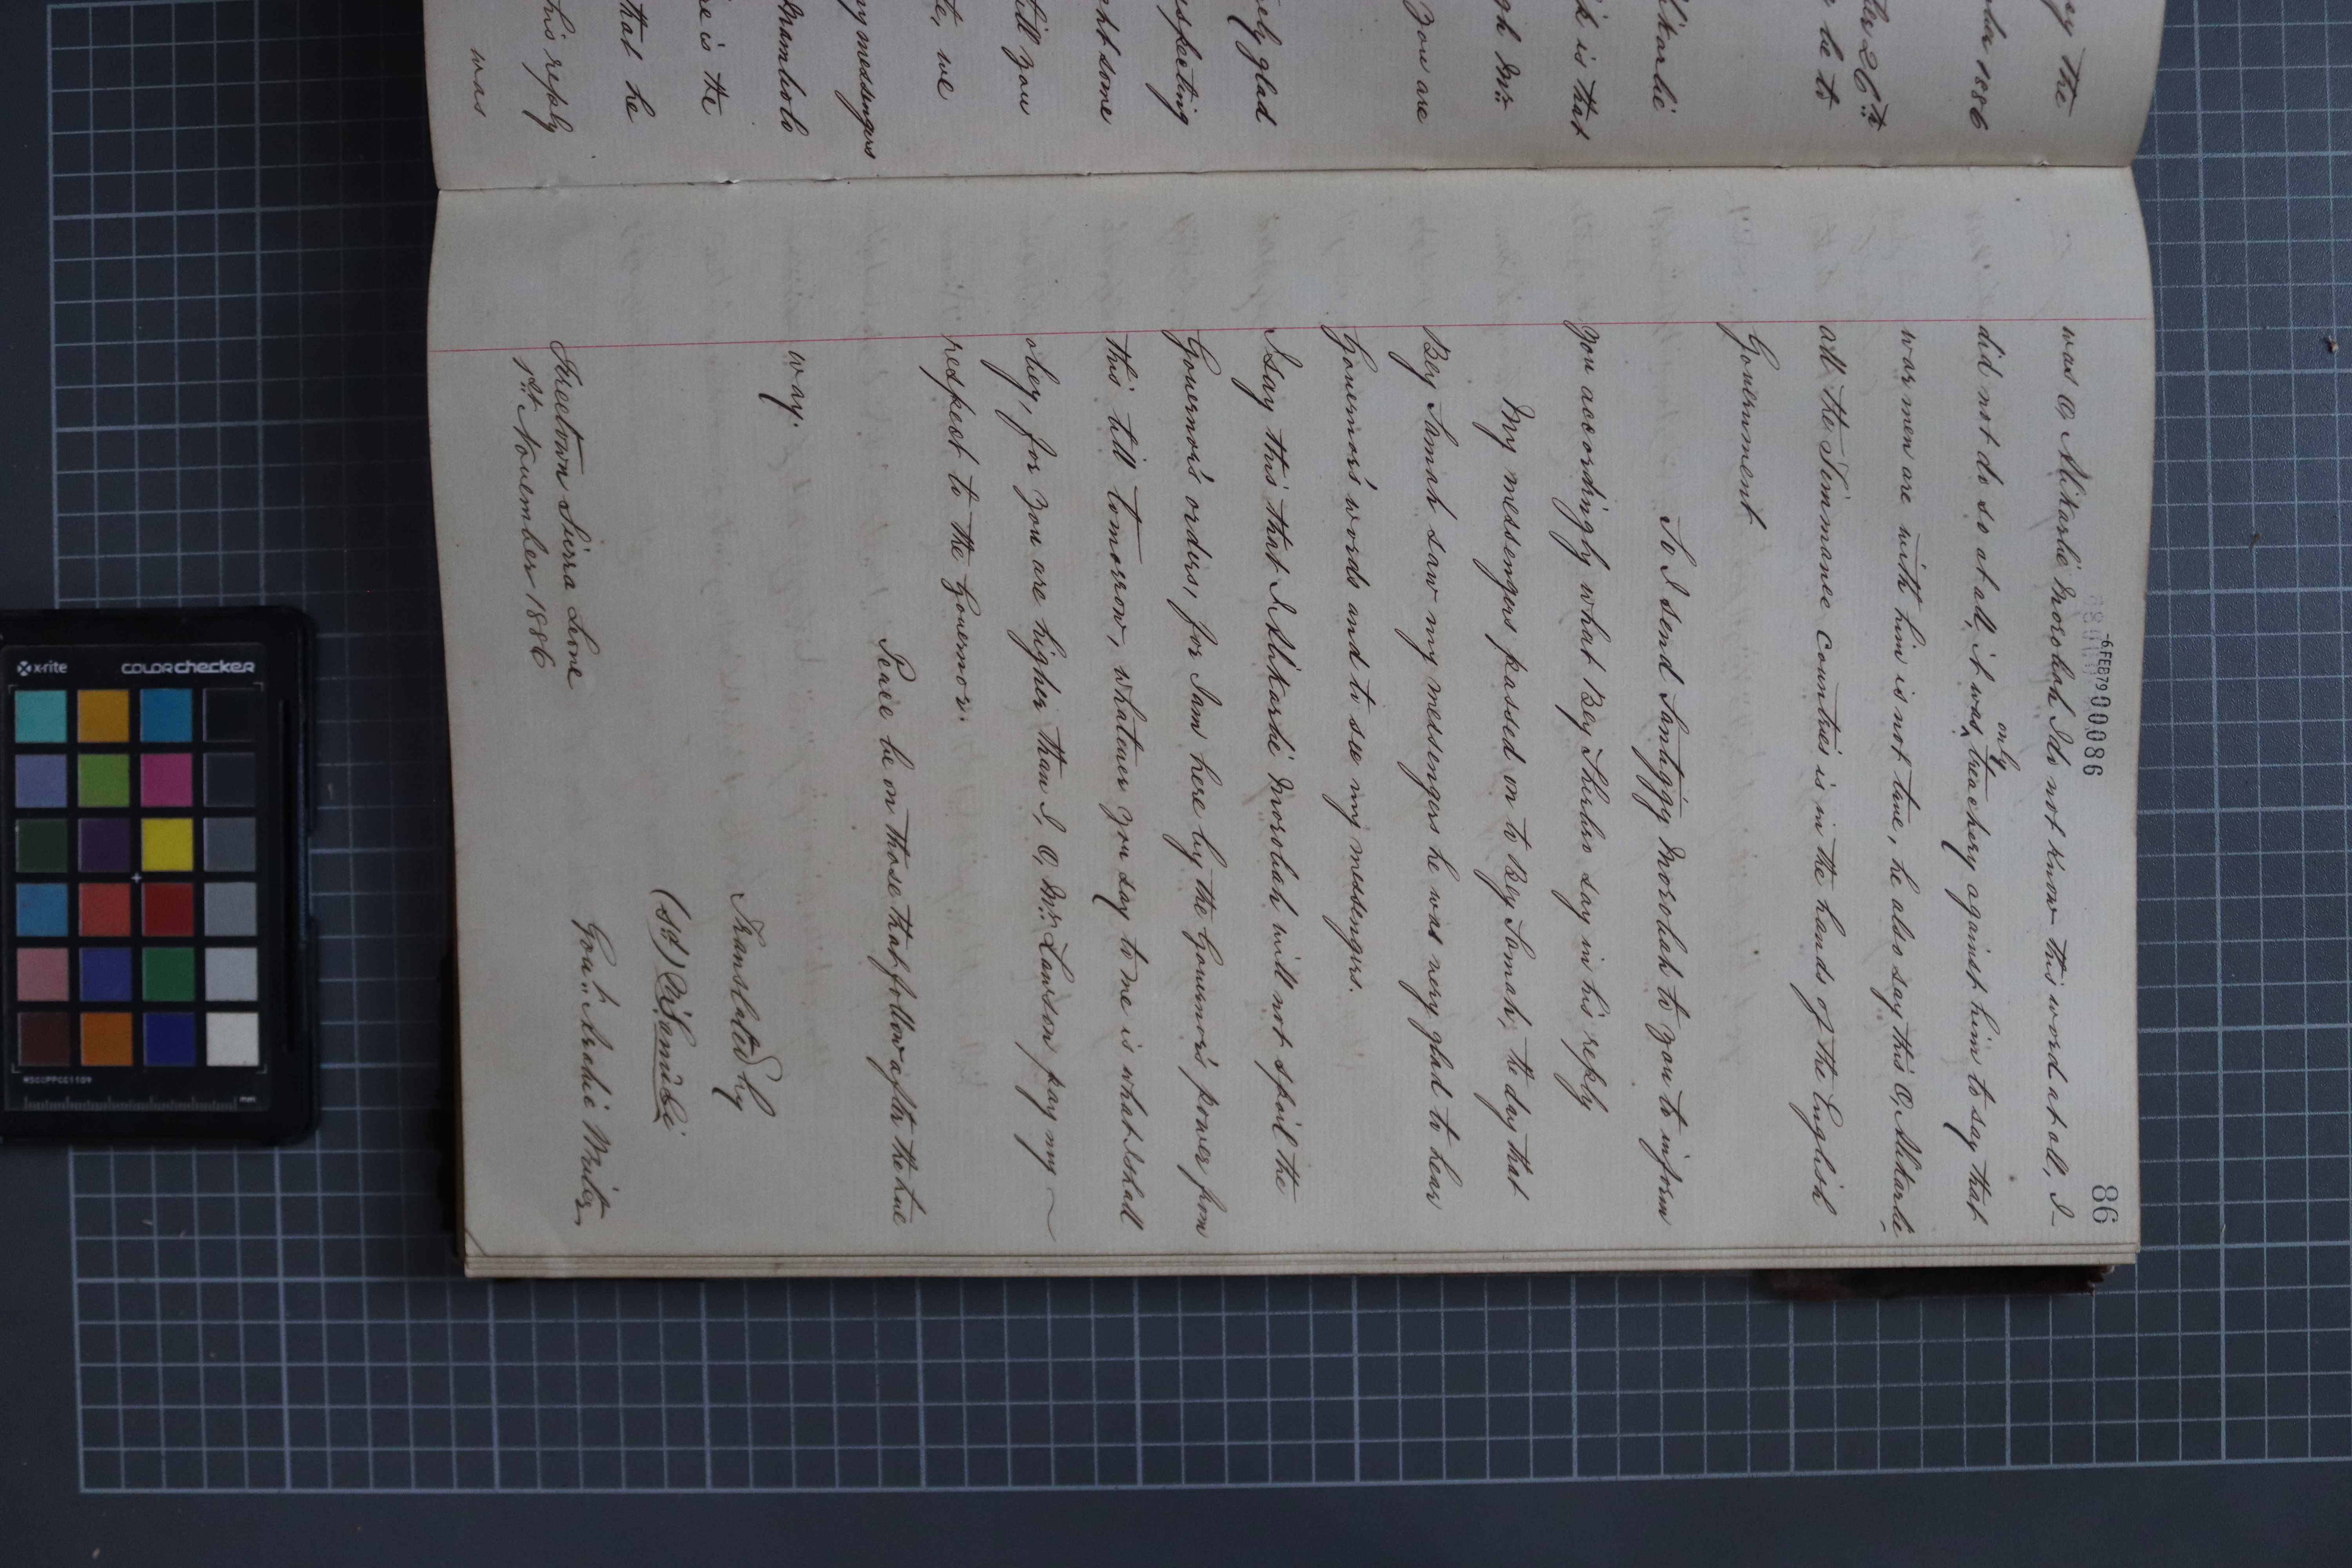 ey the
ber 1886
ber 26th
be to
lkarlie
k is that
gh Mr
you are
ely glad
especting
ht some
till you
te, we
my messengers
Brambolo
re is the
that he
his reply
was
86
-6 FEB 79 000086
was O, Alikarlie Morobah I do not know this word at all, I
did not do so at all, it was only treachery against him to say that
war men are with him is not true, he also say this O, Alikarlie
all the Timmanee Countries is in the hands of the English
Government
So I send Santiggy Morobah to you to inform
you accordingly what Bey Shurbro say in his reply
My messengers passed on to Bey Simah, the day that
Bey Simah saw my messengers he was very glad to hear
Governor's words and to see my messengers.
I say this that I Alikarlie Morobah will not spoil the
Governor's orders, for I am here by the Governor's power from
this till tomorrow, whatever you say to me is what I shall
obey, for you are higher than I, O, Mr Lawson pay my
respect to the Governor.
Peace be on those that follow after the true
way.
Translated by
(sd) M. Sanusi
Govt Arabic Writer
Freetown Sierra Leone
1st November 1886
x-rite
colorchecker
MSCCPPCC1109
mm